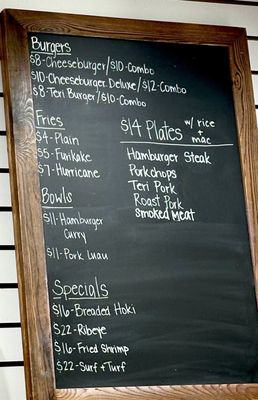 Burgers
$8-Cheeseburger/$10-Combo
$10-Cheeseburger Deluxe/$12-Combo
$8-Teri Burger/$10-Combo
Fries
$4-Plain
$5-Furikake
$7-Hurricane
Bowls
$11-Hamburger
Curry
$11-Pork Luau
$14 Plates w/ rice
+
mac
Hamburger Steak
Porkchops
Teri Pork
Roast Pork
smoked meat
Specials
$16-Breaded Hoki
$22-Ribeye
$16-Fried Shrimp
$22-Surf+Turf